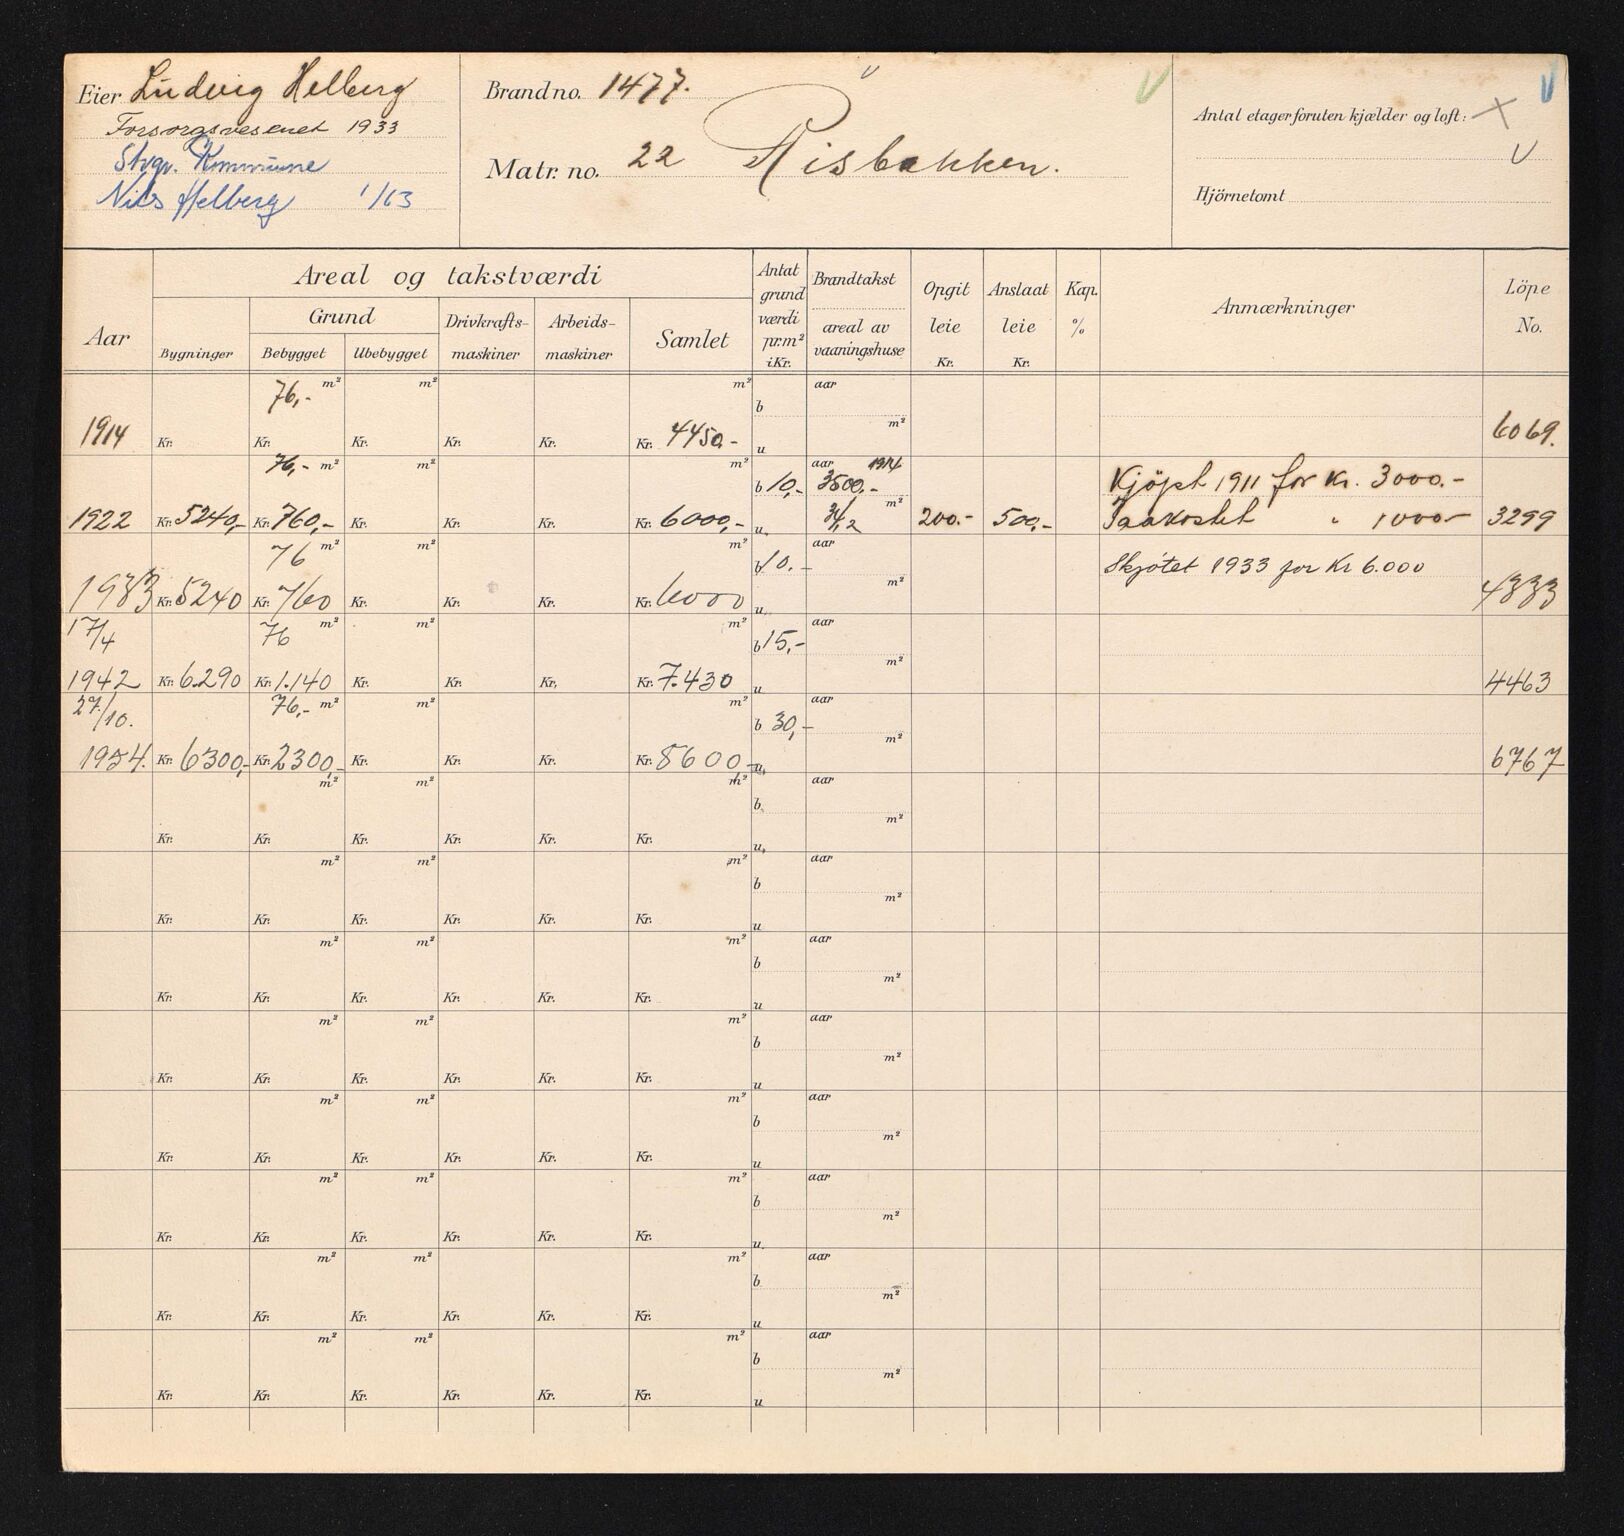 Eier Ludvig Helberg
Forsorgsvesenet 1933
Stvgr. Kommune
Nils Helberg 1/63
Brand no. 1477.
Matr. no. 22 Risbakken.
Antal etager foruten kjælder og loft:
Hjörnetomt
Aar
Areal og takstværdi
Bygninger
Grund
Bebygget Ubebygget
Drivkrafts-maskiner
Arbeids-maskiner
Samlet
Antat grund værdi pr.m² i Kr.
Brandtakst
areal av vaaningshuse
Opgit leie Kr.
Anslaat leie Kr.
Kap. %
Anmærkninger
Löpe No.
76,- m² m² m² b aar
1914 Kr. Kr. Kr. Kr. Kr. Kr. 4450.- u m² 6069.
76,- m² m² m² b 10,- aar 1914 3500,- Kjöpt 1911 for Kr. 3000.-
1922 Kr. 5240,- Kr. 760,- Kr. Kr. Kr. Kr. 6000,- u m² 200.- 500,- Paakostet " 1000- 3299
76 m² m² m² b 10.- aar Skjötet 1933 for Kr 6.000
1933 Kr. 5240 Kr. 760 Kr. Kr. Kr. Kr. 6000 u m² 4333
17/4 76 m² m² m² b 15,- aar
1942 Kr. 6.290 Kr. 1.140 Kr. Kr. Kr. Kr. 7.430 u m² 4463
27/10. 76,- m² m² m² b 30,- aar
1954. Kr. 6300,- Kr. 2300,- Kr. Kr. Kr. Kr. 8600- u m² 6767
m² m² m² b aar
Kr. Kr. Kr. Kr. Kr. Kr. u m²
m² m² m² b aar
Kr. Kr. Kr. Kr. Kr. Kr. u m²
m² m² m² b aar
Kr. Kr. Kr. Kr. Kr. Kr. u m²
m² m² m² b aar
Kr. Kr. Kr. Kr. Kr. Kr. u m²
m² m² m² b aar
Kr. Kr. Kr. Kr. Kr. Kr. u m²
m² m² m² b aar
Kr. Kr. Kr. Kr. Kr. Kr. u m²
m² m² m² b aar
Kr. Kr. Kr. Kr. Kr. Kr. u m²
m² m² m² b aar
Kr. Kr. Kr. Kr. Kr. Kr. u m²